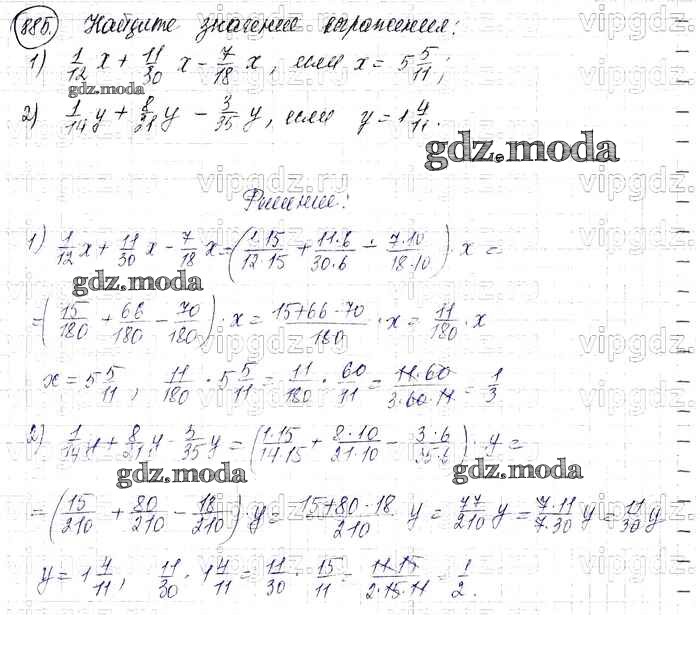 885. Найдите значение выражения:
1) 1/12 x + 11/30 x - 7/18 x, если x = 5 5/11;
gdz.moda
2) 1/14 y + 8/21 y - 3/35 y, если y = 1 4/11.
gdz.moda
vipgdz.ru
Решение:
1) 1/12 x + 11/30 x - 7/18 x = (1·15/12·15 + 11·6/30·6 - 7·10/18·10) · x =
gdz.moda
= (15/180 + 66/180 - 70/180) · x = 15+66-70/180 · x = 11/180 · x
x = 5 5/11, 11/180 · 5 5/11 = 11/180 · 60/11 = 11·60/3·60·11 = 1/3
2) 1/14 y + 8/21 y - 3/35 y = (1·15/14·15 + 8·10/21·10 - 3·6/35·6) · y =
gdz.moda gdz.moda
= (15/210 + 80/210 - 18/210) · y = 15+80-18/210 y = 77/210 y = 7·11/7·30 y = 11/30 y
y = 1 4/11, 11/30 · 1 4/11 = 11/30 · 15/11 = 11·15/2·15·11 = 1/2.